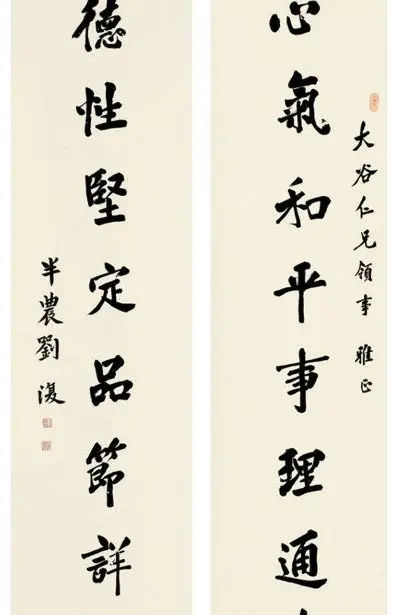 大谷仁兄領事 雅正
心氣和平事理通
德性堅定品節詳
半農劉復